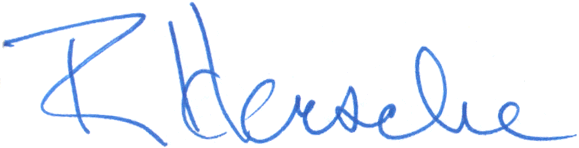 R Hersche